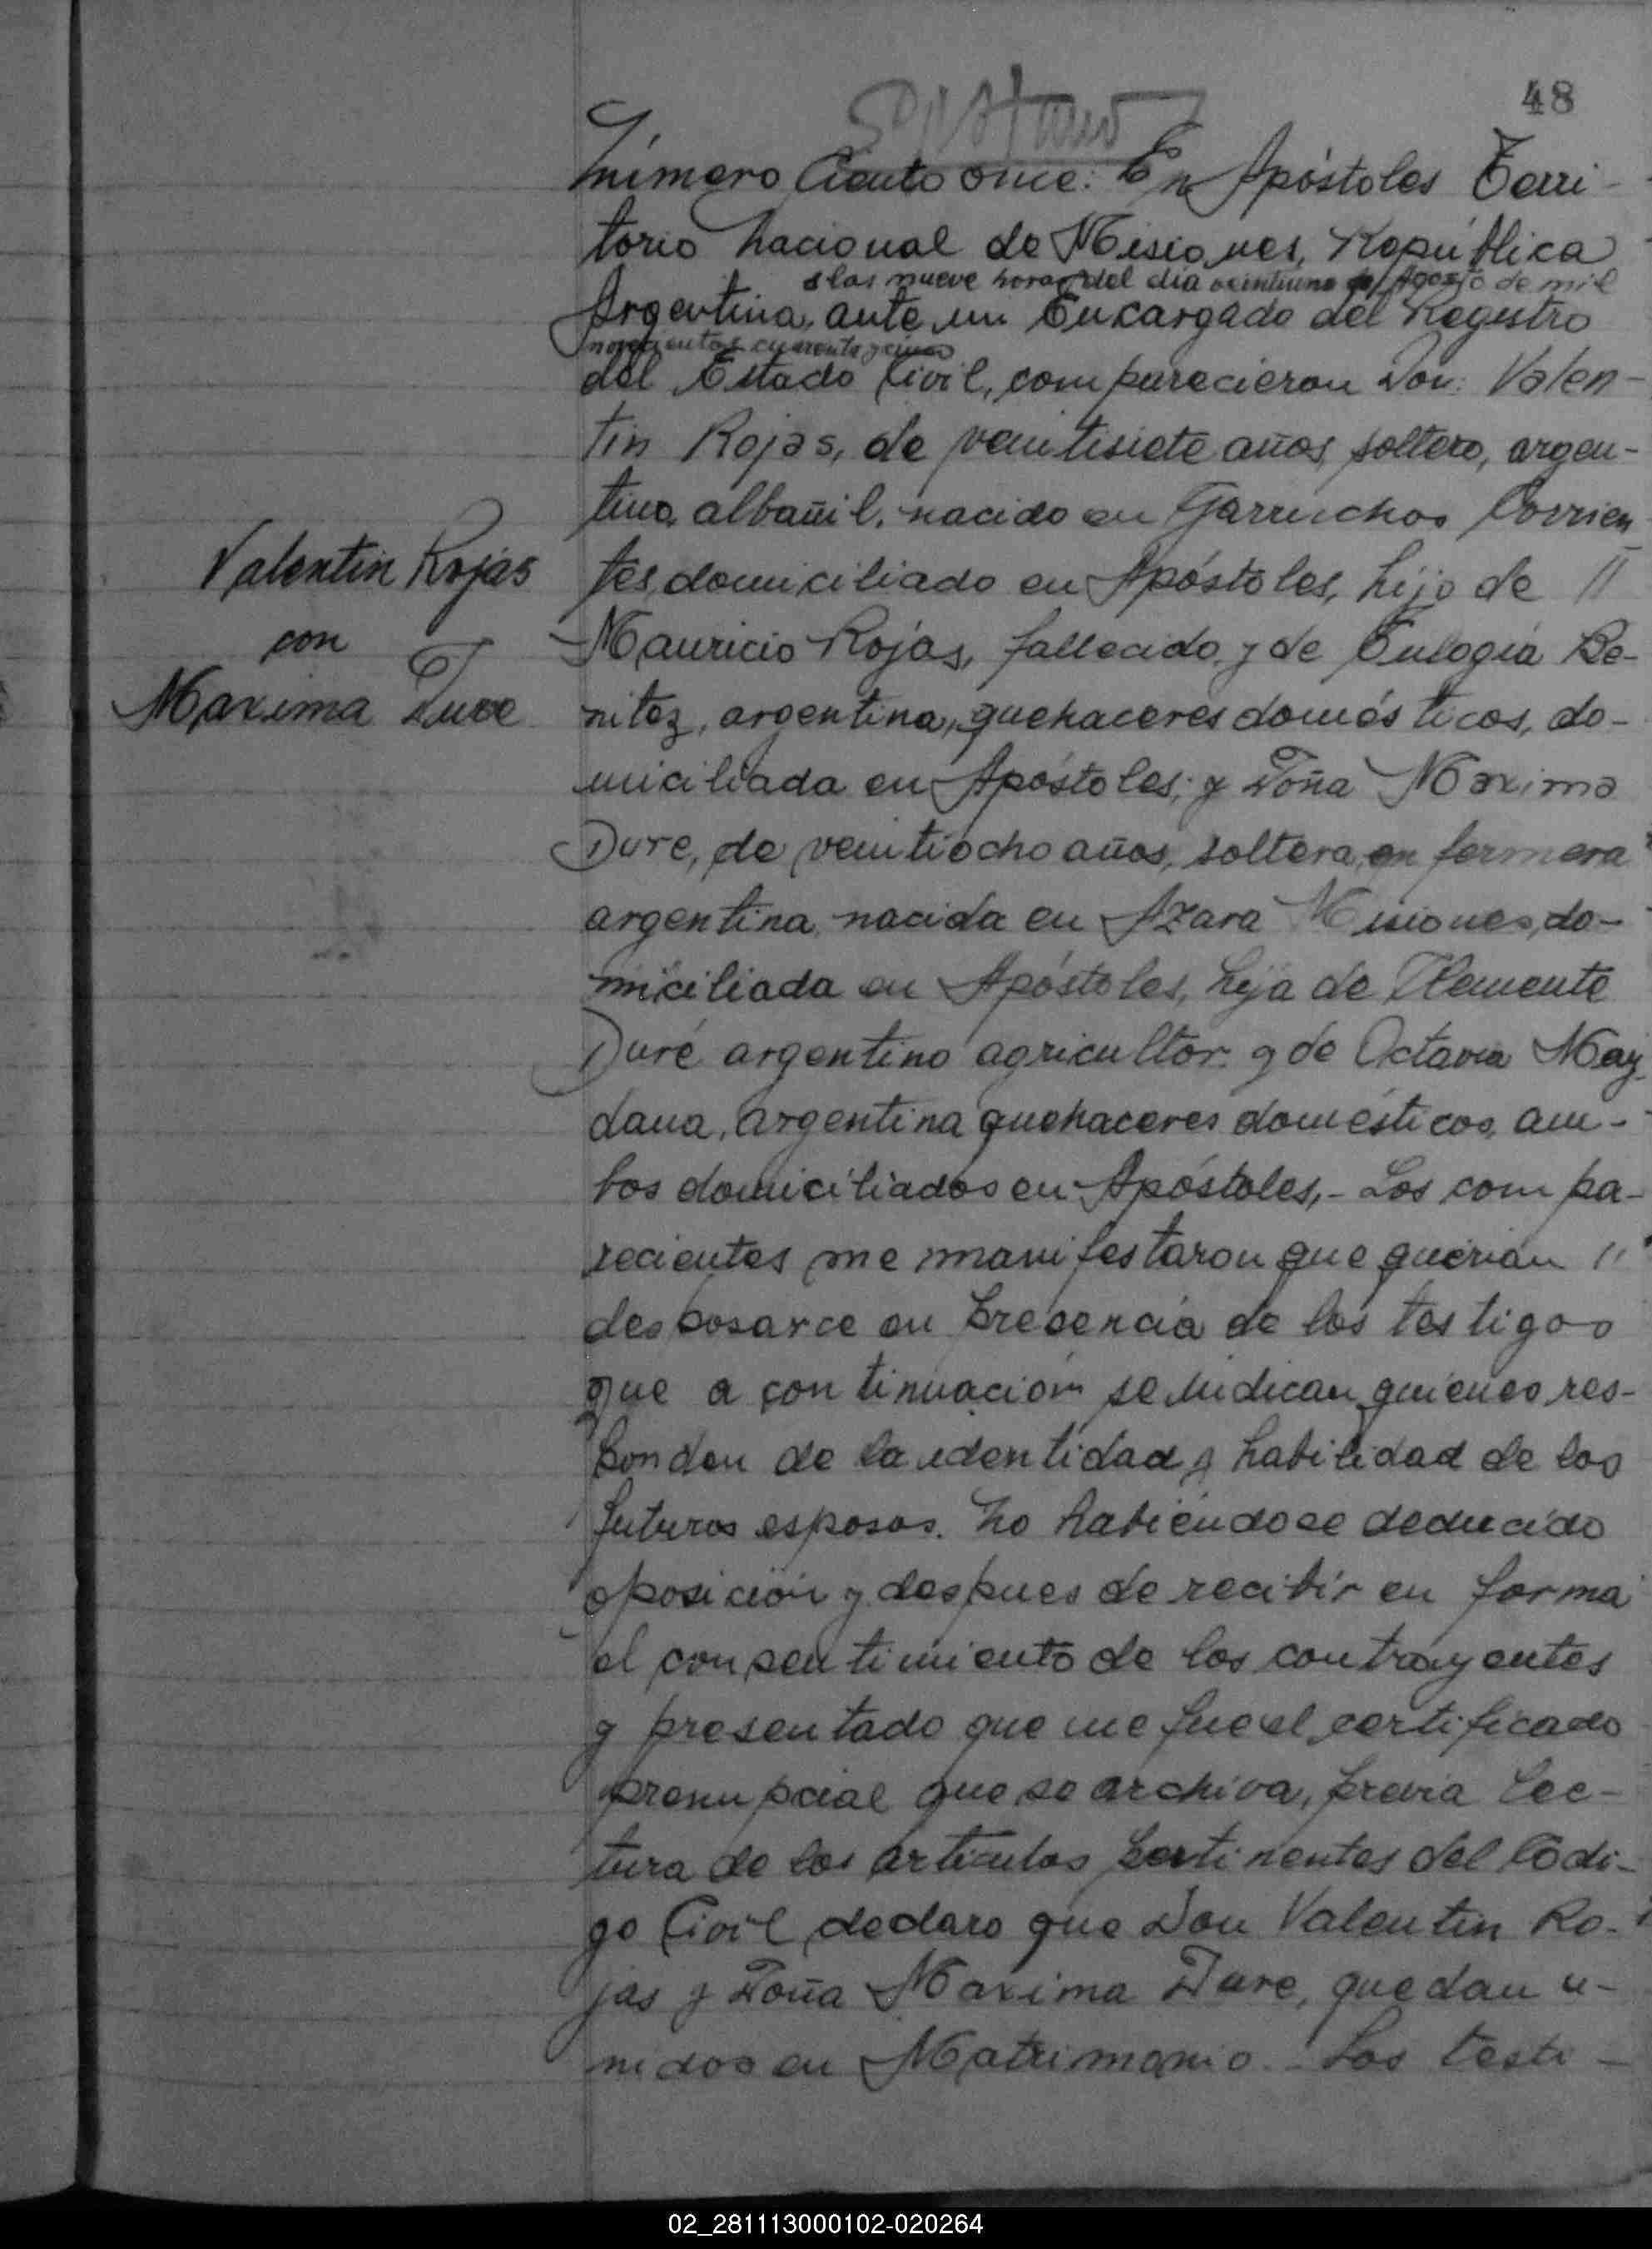 48
Número Ciento once: En Apóstoles Terri-
torio nacional de Misiones, República
a las nueve horas del día veintiuno de Agosto de mil
Argentina, ante mi Encargado del Registro
novecientos cuarenta y cinco
del Estado Civil, comparecieron Don: Valen-
tin Rojas, de veintisiete años, soltero, argen-
tino, albañil, nacido en Garruchos Corrien
tes, domiciliado en Apóstoles, hijo de //
Mauricio Rojas, fallecido, y de Eulogia Be-
nitez, argentina, quehaceres domésticos, do-
miciliada en Apóstoles; y Doña Maxima
Dure, de veintiocho años, soltera, enfermera
argentina, nacida en Azara Misiones, do-
miciliada en Apóstoles, hija de Clemente
Duré argentino agricultor y de Octavia May
dana, argentina quehaceres domésticos, am-
bos domiciliados en Apóstoles,- Los compa-
recientes me manifestaron que querian //
desposarce en presencia de los testigos
que a continuación se indican, quienes res-
ponden de la identidad y habilidad de los
futuros esposos. No habiendose deducido
oposición y despues de recibir en forma
el consentimiento de los contrayentes
y presentado que me fue el certificado
prenupcial que se archiva, previa lec-
tura de los articulos pertinentes del Codi-
go Civil, declaro que Don Valentin Ro-
jas y Doña Maxima Dure, quedan u-
nidos en Matrimonio.- Los testi-
Valentin Rojas
con
Maxima Dure
02_281113000102-020264